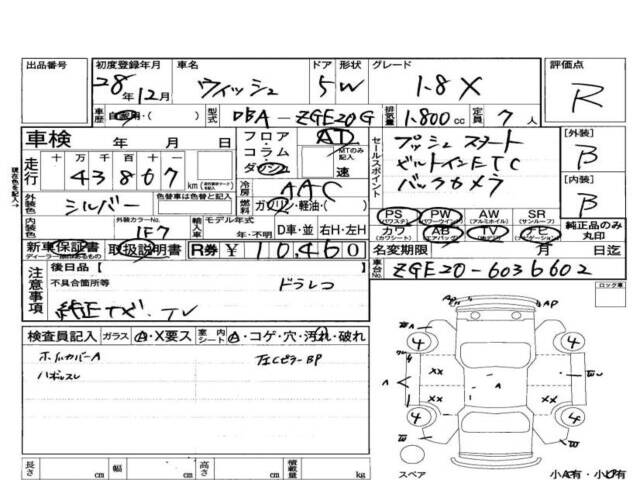 出品番号 初度登録年月 車名 ドア 形状 グレード 評価点
28年12月 ウィッシュ 5 W 1.8X R
車歴 自家用・( ) 型式 DBA-ZGE20G 排気量 1.800cc 定員 7人
車検 年 月 日
フロア・コラム・ダ AT MTのみ記入 速
セールスポイント プッシュスタート
ビルトインETC
バックカメラ
[外装] B
[内装] B
走行 十 万 千 百 十 一
43807 km
冷房 AAC
外装色 シルバー 色替車は色替と記入 燃料 ガソリン・軽油・( )
PS (パワステ) PW (パワーウインド) AW (アルミホイル) SR (サンルーフ)
カワ (カワシート) AB (エアバッグ) TV (テレビ) ナビ (ナビゲーション)
純正品のみ丸印
内装色 外装カラーNo. 1F7 輸入車 モデル年式 年・不明 D車・並 右H・左H
新車保証書 ディーラー印があるもの 取扱説明書 R券 ¥10,460 名変期限 月 日迄
車台No. ZGE20-6036602
現在色を記入→
注意事項 後日品 [
不具合箇所等 ドラレコ
純正ナビ.TV
ロック車
検査員記入 ガラス A・X要ス 室内シート A・コゲ・穴・汚れ・破れ
ホイルカバーA 左CピラーBP
ハガレスレ
AP AP
W A 4 4
XX XX A W
A
4 4
W W
スペア 小A有・小U有
長さ cm 幅 cm 高さ cm 積載量 kg